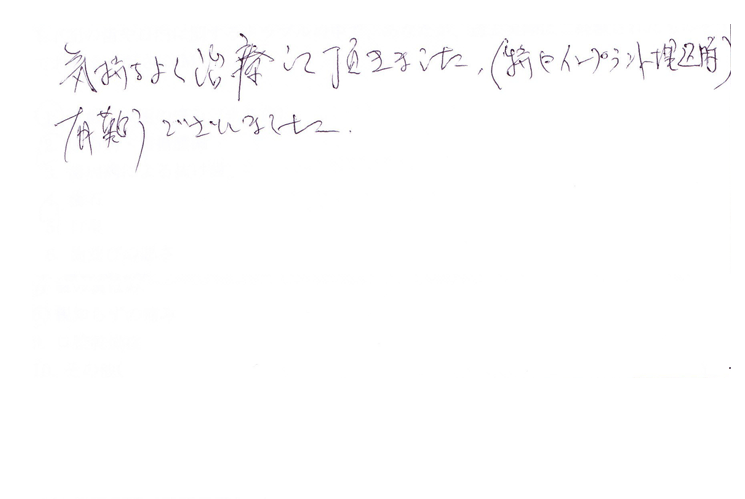 気持ちよく治療して頂きました。(特にインプラント埋込時)
有難うございました。